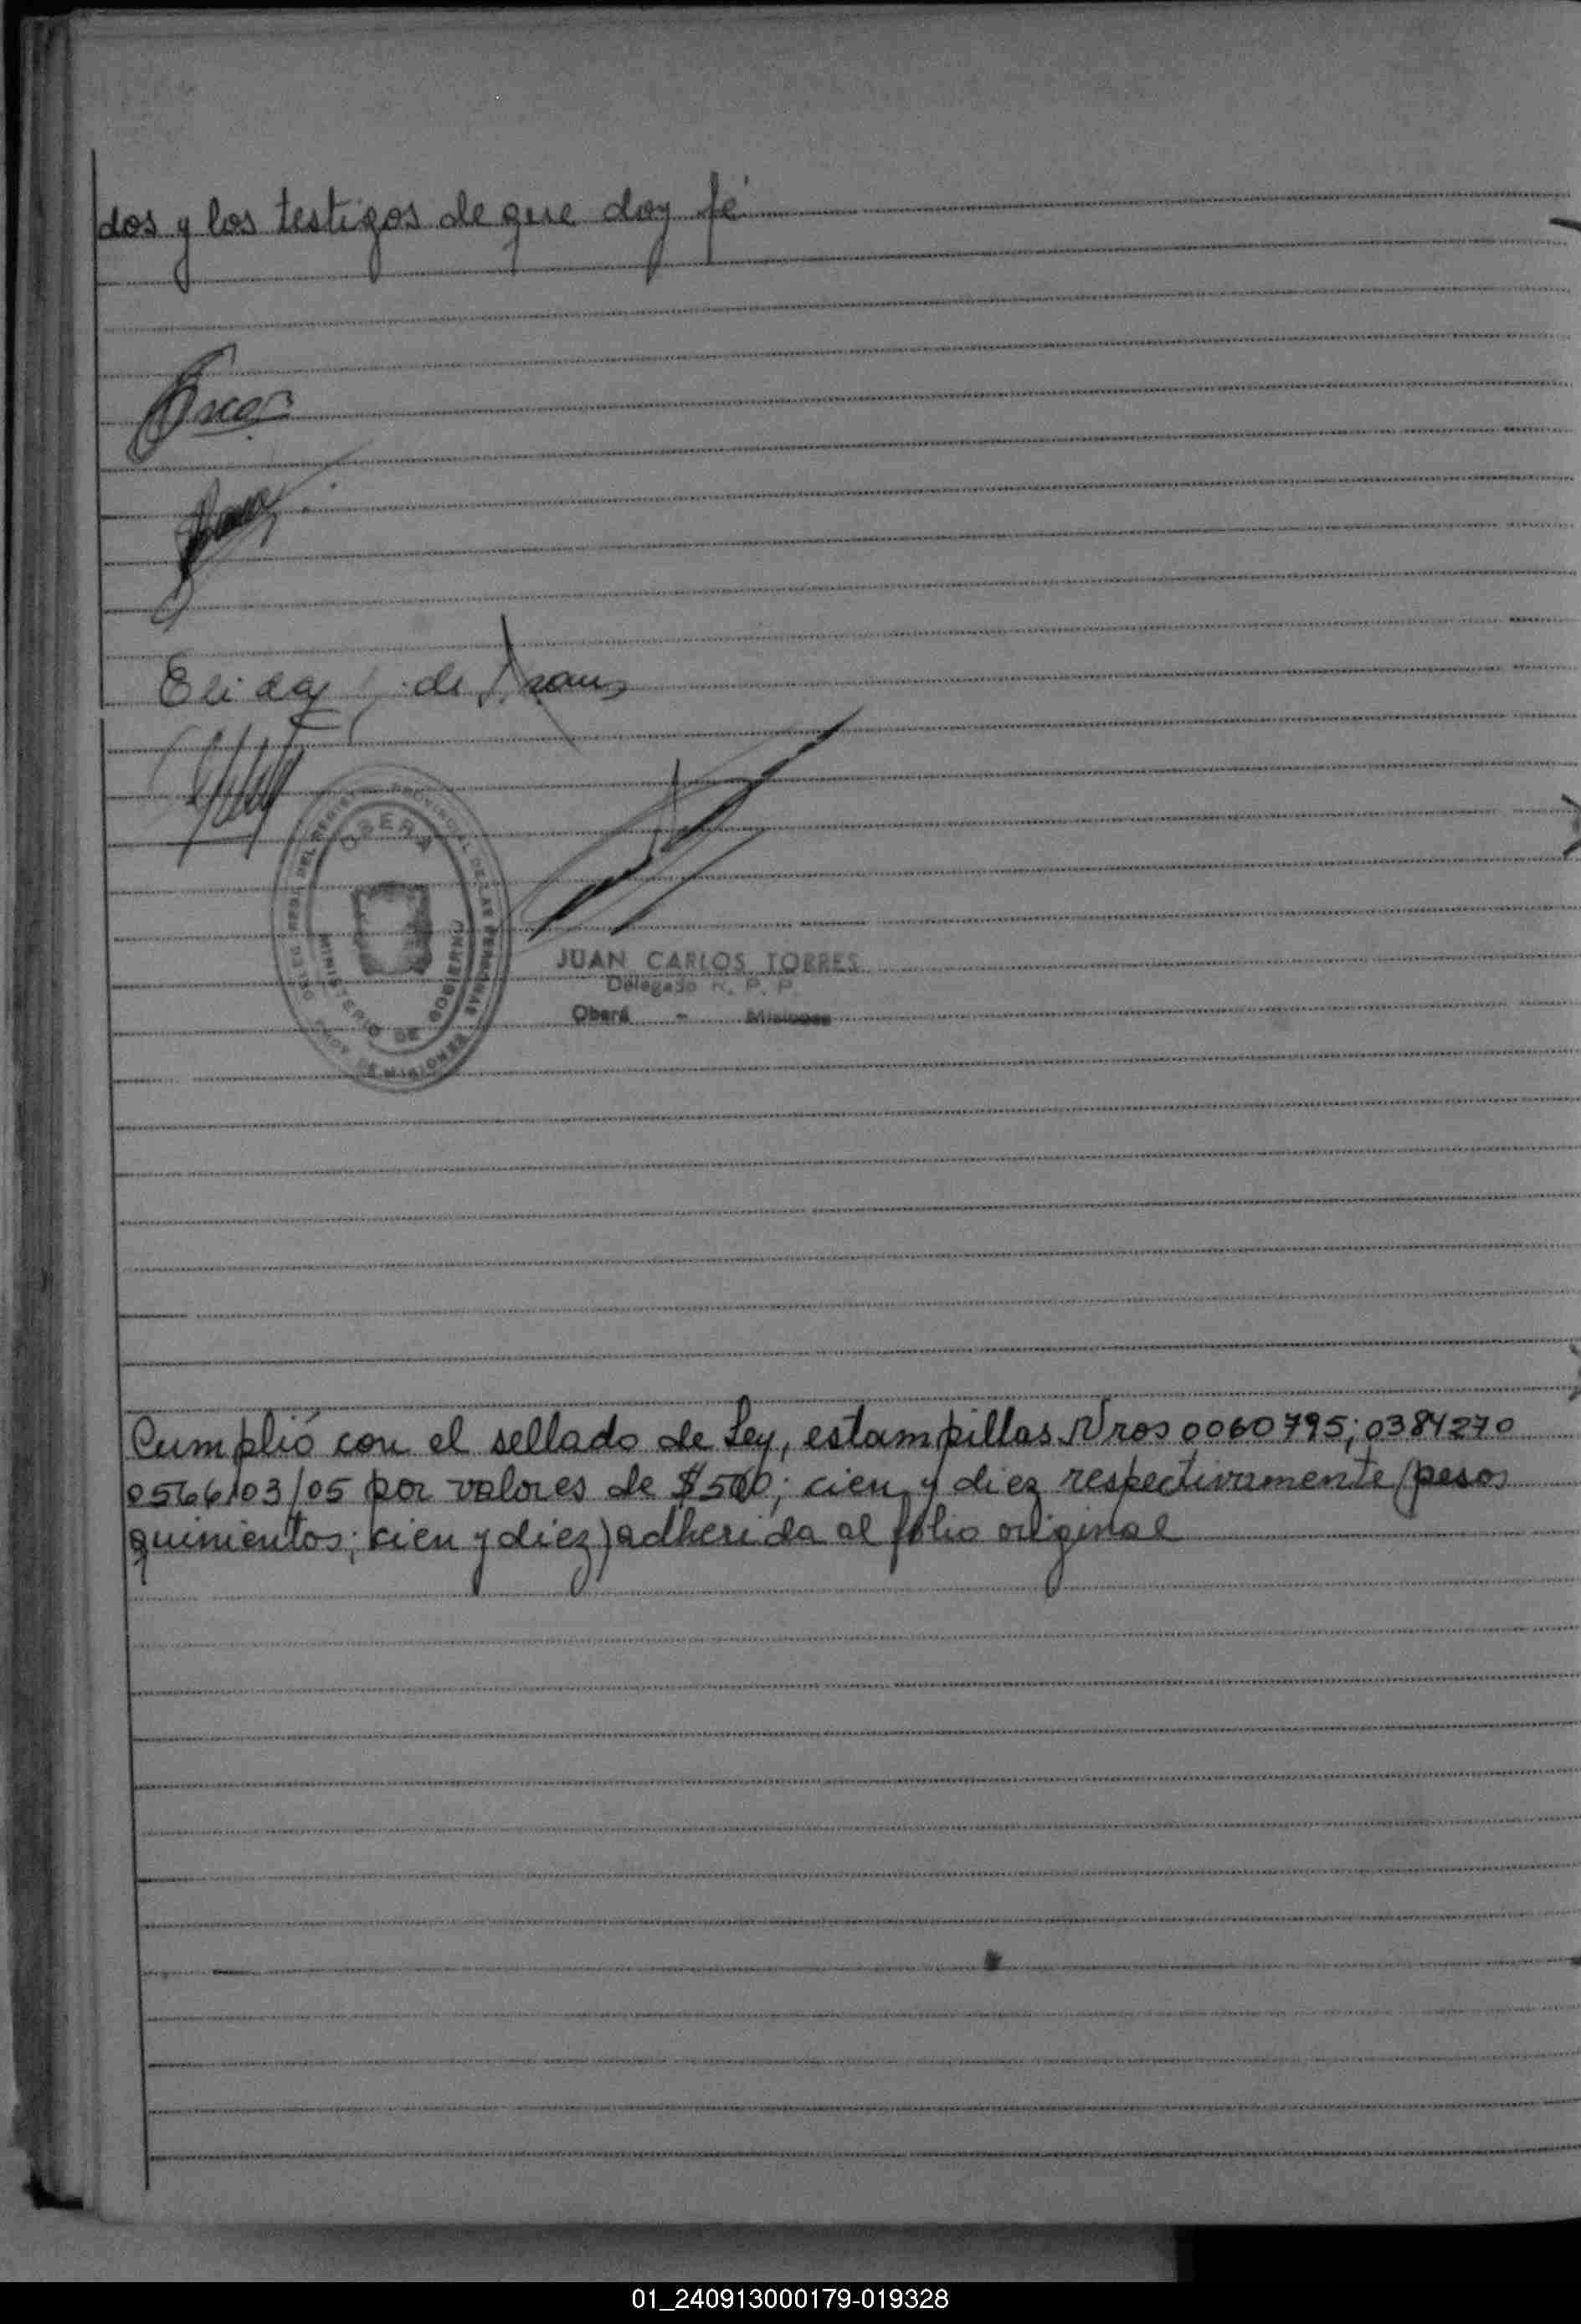 dos y los testigos de que doy fé
Elida de
OBERA
MINISTERIO DE GOBIERNO
DEL REGISTRO PROVINCIAL DE LAS PERSONAS
PROV. DE MISIONES
JUAN CARLOS TORRES
Delegado R. P. P.
Oberá - Misiones
Cumplió con el sellado de Ley, estampillas Nros 0060795; 0384270
0566103/05 por valores de $500; cien y diez respectivamente (pesos
quinientos; cien y diez) adherida al folio original
01_240913000179-019328